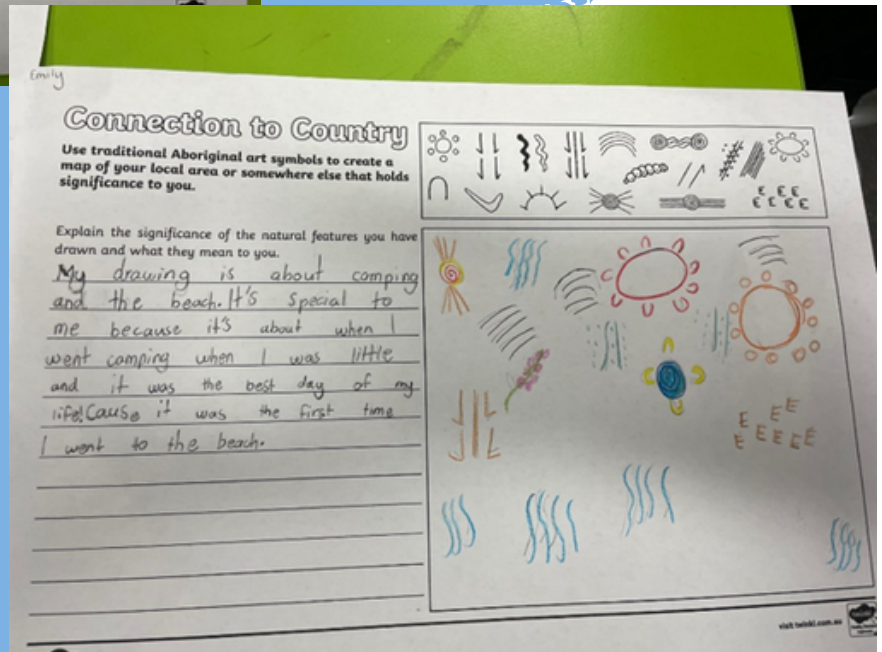 Emily
Connection to Country
Use traditional Aboriginal art symbols to create a
map of your local area or somewhere else that holds
significance to you.
Explain the significance of the natural features you have
drawn and what they mean to you.
My drawing is about camping
and the beach. It's special to
me because it's about when I
went camping when I was little
and it was the best day of my
life! Cause it was the first time
I went to the beach.
visit twinkl.com.au